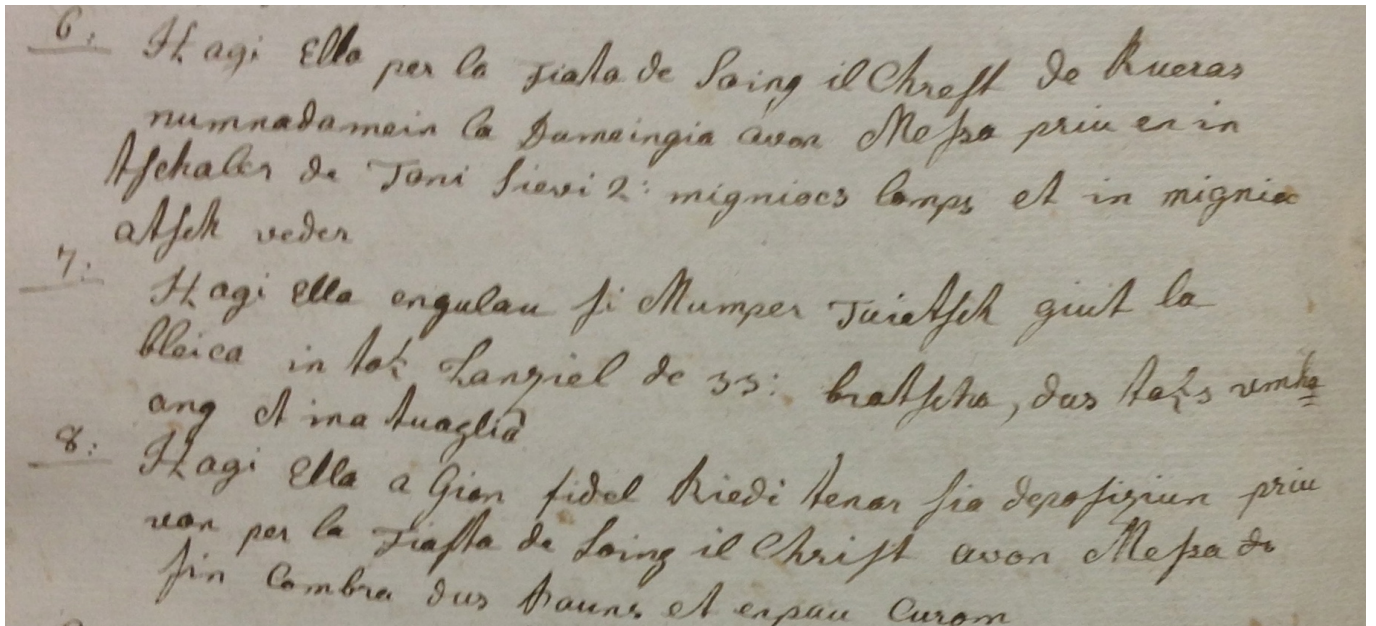 6: It. agi Ella per la Fiasta de Soing il Chrest de Rueras
numnadamein la Dumeingia avon Messa priu en in
tschaler de Toni Sievi 2: migniocs lomps et in mignia
atsch veder
7: It. agi Ella engulau si Mumper Tuietsch giut la
bleica in toc Lanziel de 33: bratscha, dus tocs
ang et ina tuaglia
8: It. agi Ella a Gion fidel Riedi tenor sia deposiziun priu
von per la Fiasta de Soing il Christ avon Messa do
sin Combra dus Pauns et enpau Curom